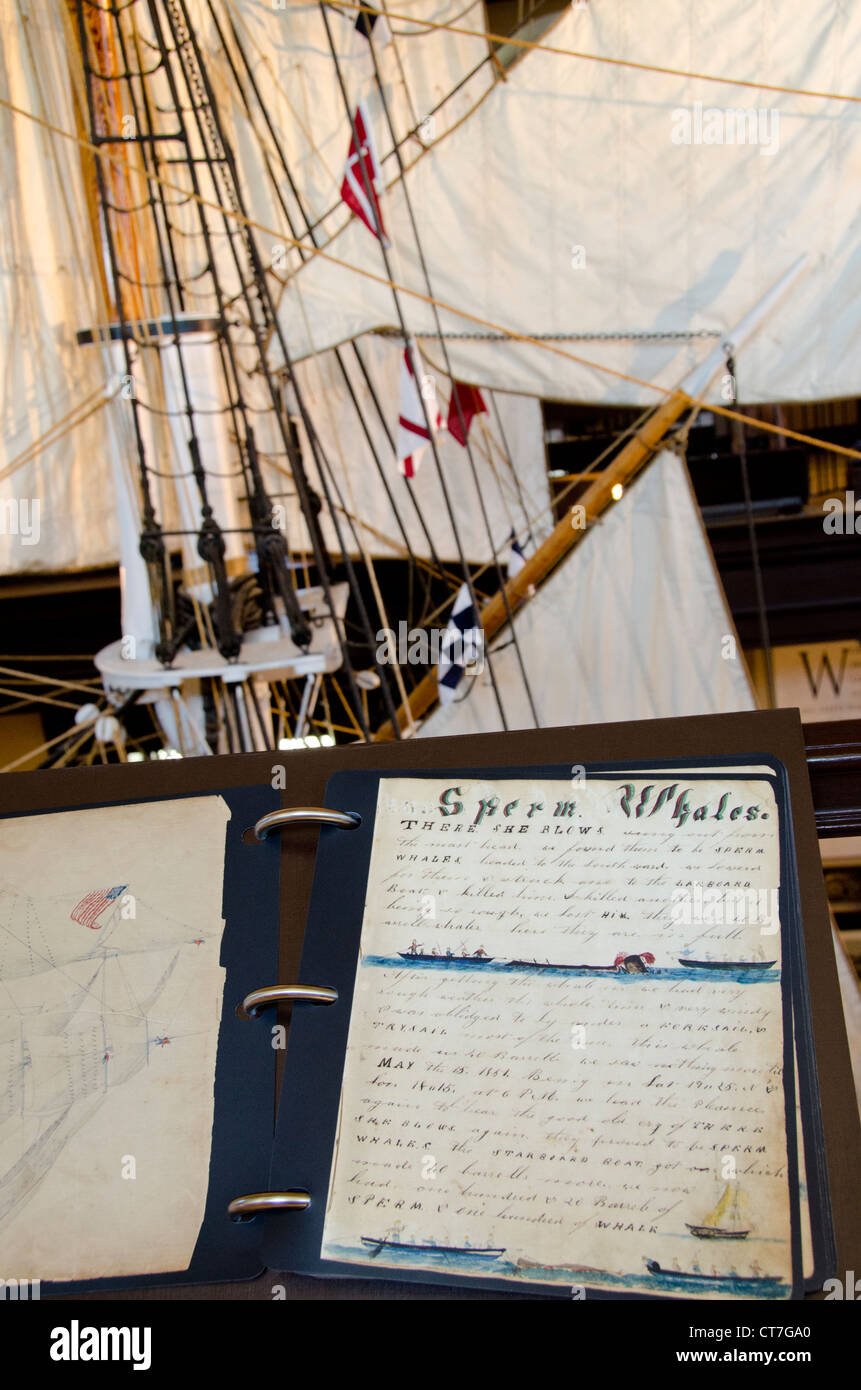 W
Sperm Whales.
THERE SHE BLOWS sung out from
the mast head. we found them to be SPERM
WHALES headed to the south ward. we lowered
for them & struck one to the LARBOARD
Boat, & killed him. & killed another but
being so rough, we lost HIM. they
here they are in full
After getting the whale in we had very
rough weather the whole time & very windy
& was obledged to by under a FORESAIL, &
TRYSAIL most of the time. this whale
made us 40 Barrells we saw nothing more til
MAY the 15. 1851. Being on Lat 19"
Lon at 6 P.M. we had the Pleasure
again of hear the good old cry of THERE
SHE BLOWS again, they proved to be SPERM
WHALES, the STARBOARD BOAT got one which
made barrells more. we now
had one hundred & 20 Barrels of
SPERM & one hundred of WHALE
alamy
alamy
Image ID: CT7GA0
www.alamy.com